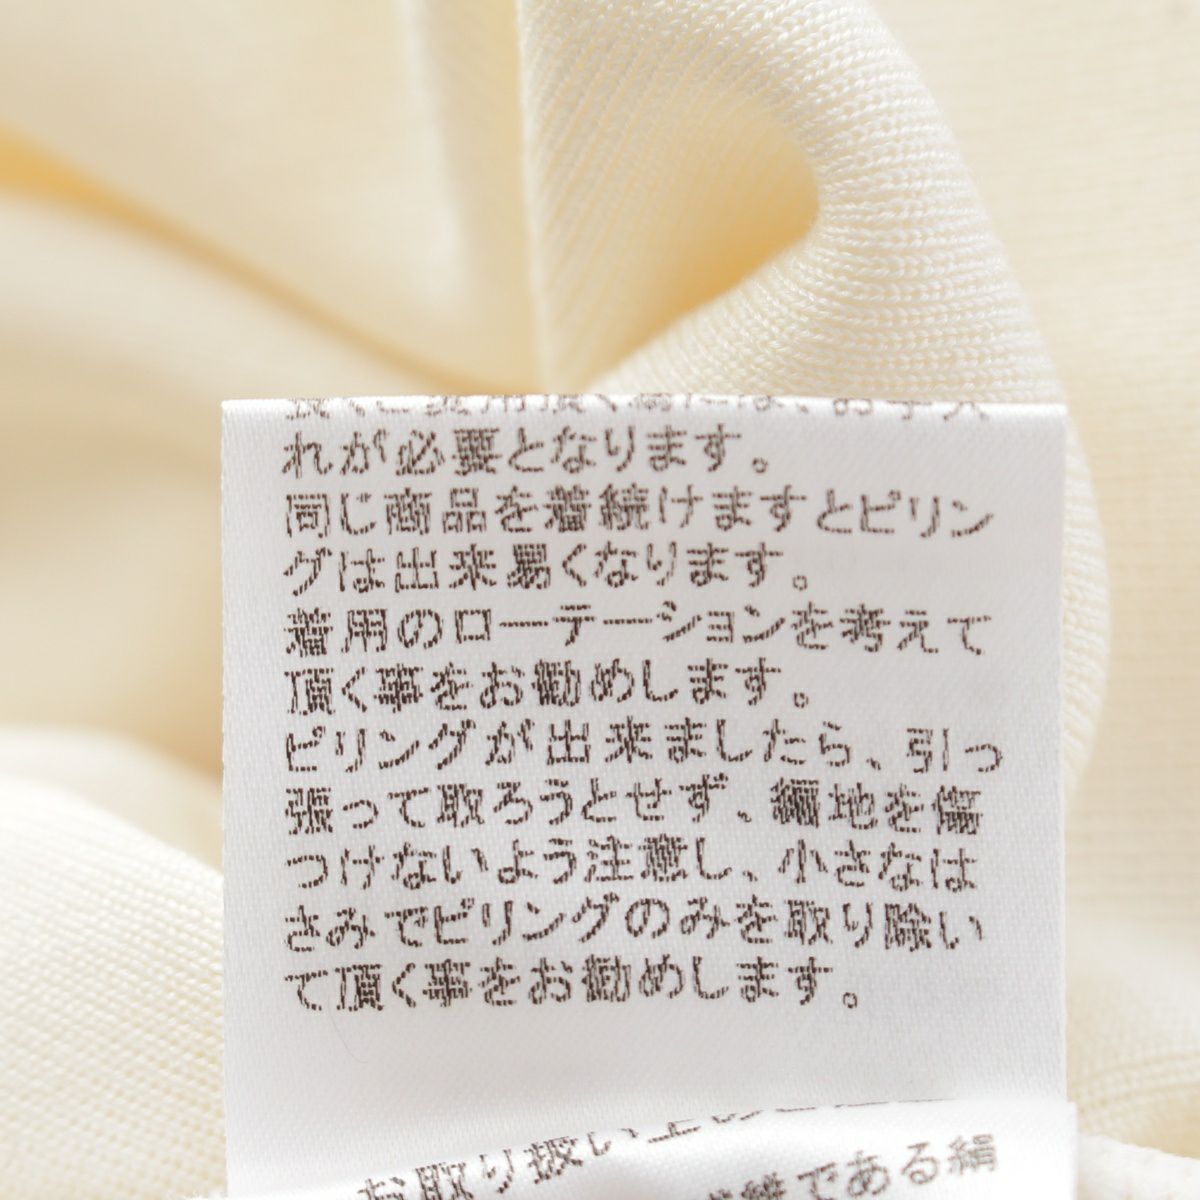 長くご愛用頂く為には、お手入
れが必要となります。
同じ商品を着続けますとピリン
グは出来易くなります。
着用のローテーションを考えて
頂く事をお勧めします。
ピリングが出来ましたら、引っ
張って取ろうとせず、編地を傷
つけないよう注意し、小さなは
さみでピリングのみを取り除い
て頂く事をお勧めします。
お取り扱い上の
である絹